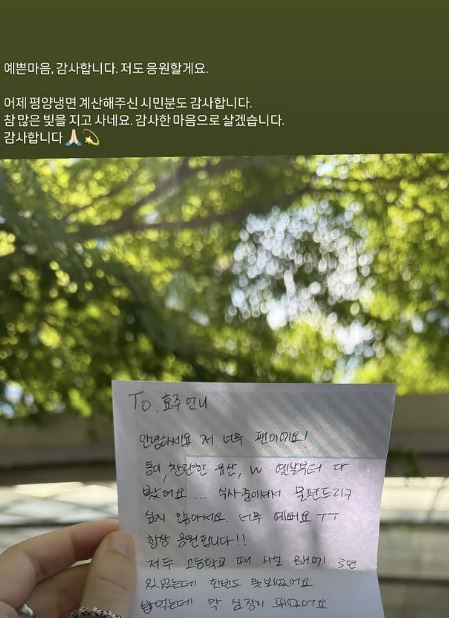 예쁜마음, 감사합니다. 저도 응원할게요.
어제 평양냉면 계산해주신 시민분도 감사합니다.
참 많은 빚을 지고 사네요. 감사한 마음으로 살겠습니다.
감사합니다🙏🏻💫
To. 효주언니
안녕하세요 저 너무 팬이에요!
동이, 찬란한 유산, W 옛날부터 다
봤어요... 식사 중이셔서 불편드리구
싶지 않아서요. 너무 예뻐요 ㅜㅜ
항상 응원합니다!!
저두 고등학교 때 사실 3번
있었는데 한번도 못봬었어요
밥먹는데 막 심장이 뛰었어요